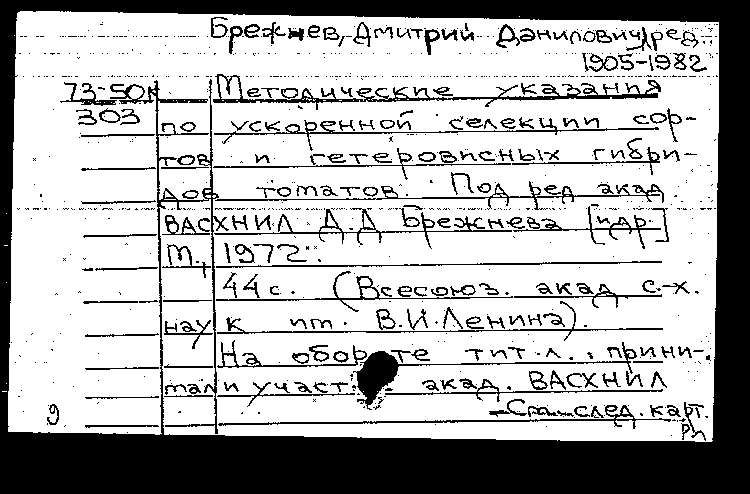 Брежнев, Дмитрий Данилович, ред.
1905-1982
73-50к Методические указания
303 по ускоренной селекции сор-
тов и гетерозисных гибри-
дов томатов. Под ред акад
ВАСХНИЛ Д.Д Брежнева [и др.]
М., 1972.
44 с. (Всесоюз. акад с.-х.
наук им. В.И.Ленина).
На обороте тит.л.: прини-
мали участ. акад. ВАСХНИЛ
См. след. карт.
9